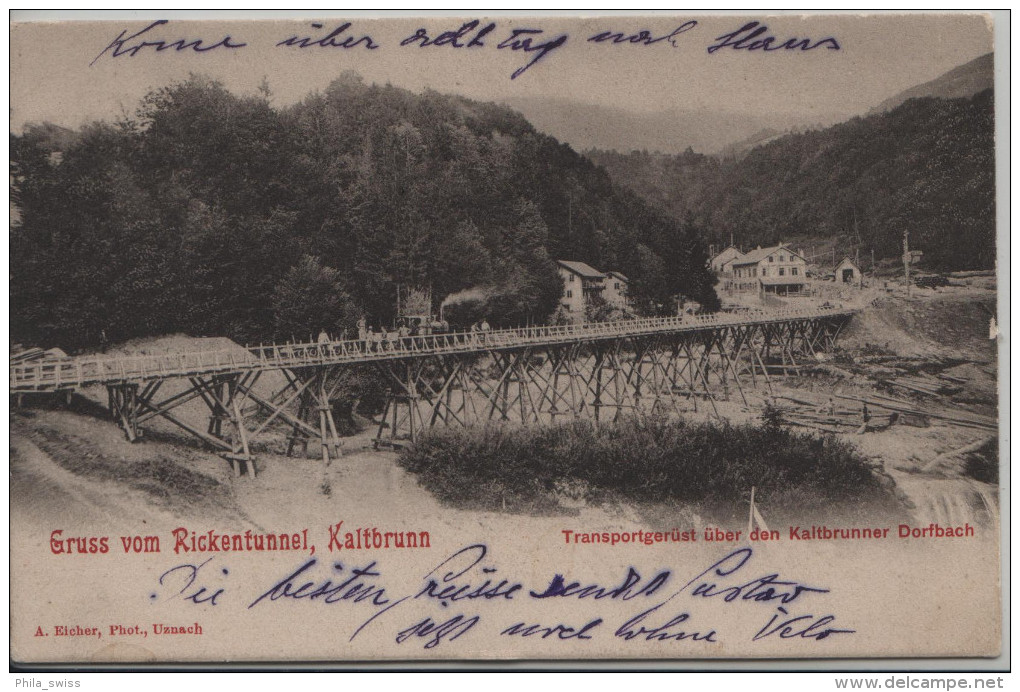 Kome über acht tag nach Stans
Gruss vom Rickentunnel, Kaltbrunn
Transportgerüst über den Kaltbrunner Dorfbach
Die besten Grüsse sendet Gustav
A. Eicher, Phot., Uznach
jetzt noch ohne Velo
Phila_swiss
www.delcampe.net